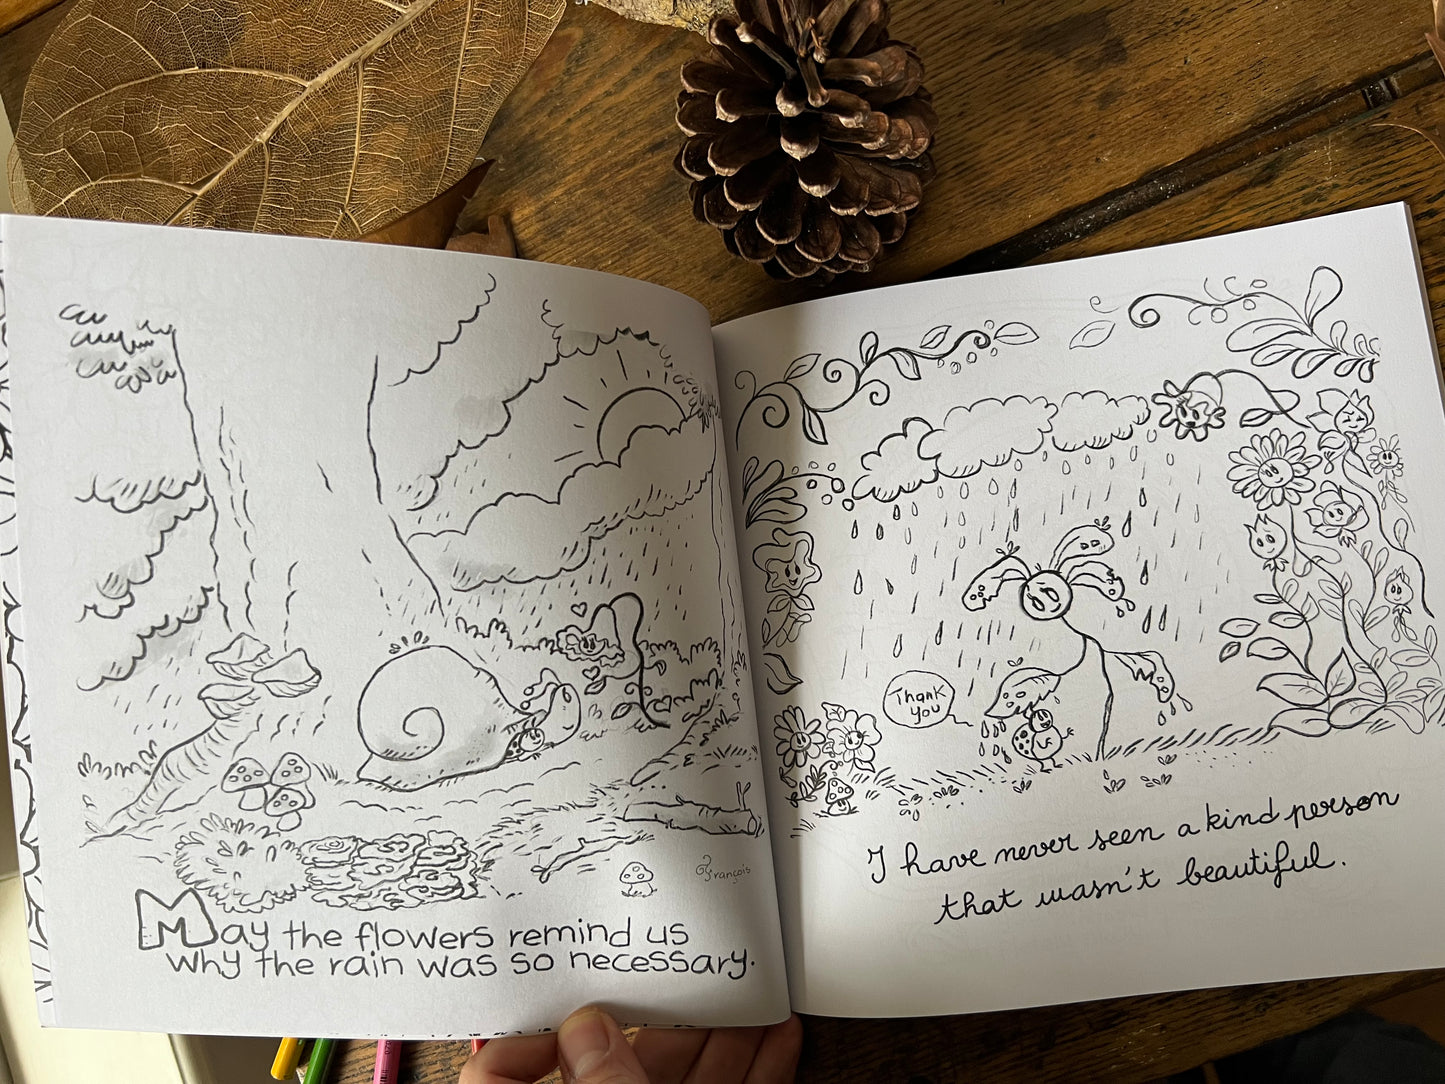 François
May the flowers remind us
why the rain was so necessary.
Thank
you
I have never seen a kind person
that wasn't beautiful.